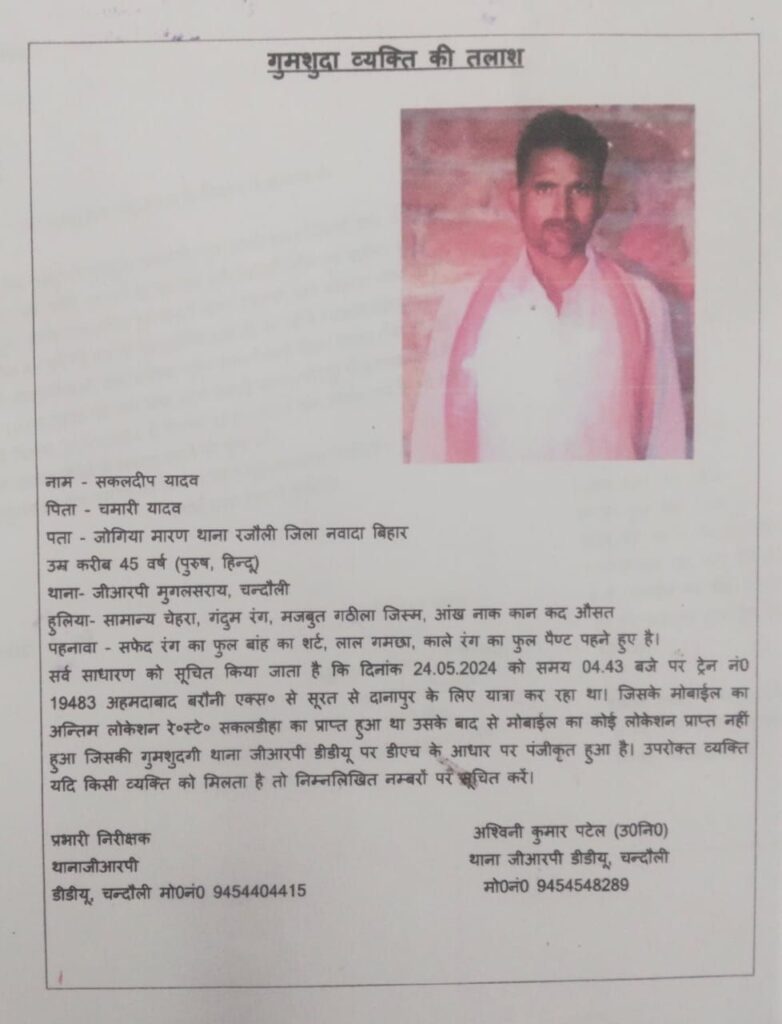 गुमशुदा व्यक्ति की तलाश
नाम - सकलदीप यादव
पिता - चमारी यादव
पता - जोगिया मारण थाना रजौली जिला नवादा बिहार
उम्र करीब 45 वर्ष (पुरुष, हिन्दू)
थाना- जीआरपी मुगलसराय, चन्दौली
हुलिया- सामान्य चेहरा, गंदुम रंग, मजबुत गठीला जिस्म, आंख नाक कान कद औसत
पहनावा - सफेद रंग का फुल बांह का शर्ट, लाल गमछा, काले रंग का फुल पैण्ट पहने हुए है।
सर्व साधारण को सूचित किया जाता है कि दिनांक 24.05.2024 को समय 04.43 बजे पर ट्रेन नं0
19483 अहमदाबाद बरौनी एक्स० से सूरत से दानापुर के लिए यात्रा कर रहा था। जिसके मोबाईल का
अन्तिम लोकेशन रे०स्टे० सकलडीहा का प्राप्त हुआ था उसके बाद से मोबाईल का कोई लोकेशन प्राप्त नहीं
हुआ जिसकी गुमशुदगी थाना जीआरपी डीडीयू पर डीएच के आधार पर पंजीकृत हुआ है। उपरोक्त व्यक्ति
यदि किसी व्यक्ति को मिलता है तो निम्नलिखित नम्बरों पर सूचित करें।
प्रभारी निरीक्षक
थानाजीआरपी
डीडीयू, चन्दौली मो0नं0 9454404415
अश्विनी कुमार पटेल (उ0नि0)
थाना जीआरपी डीडीयू, चन्दौली
मो0नं0 9454548289